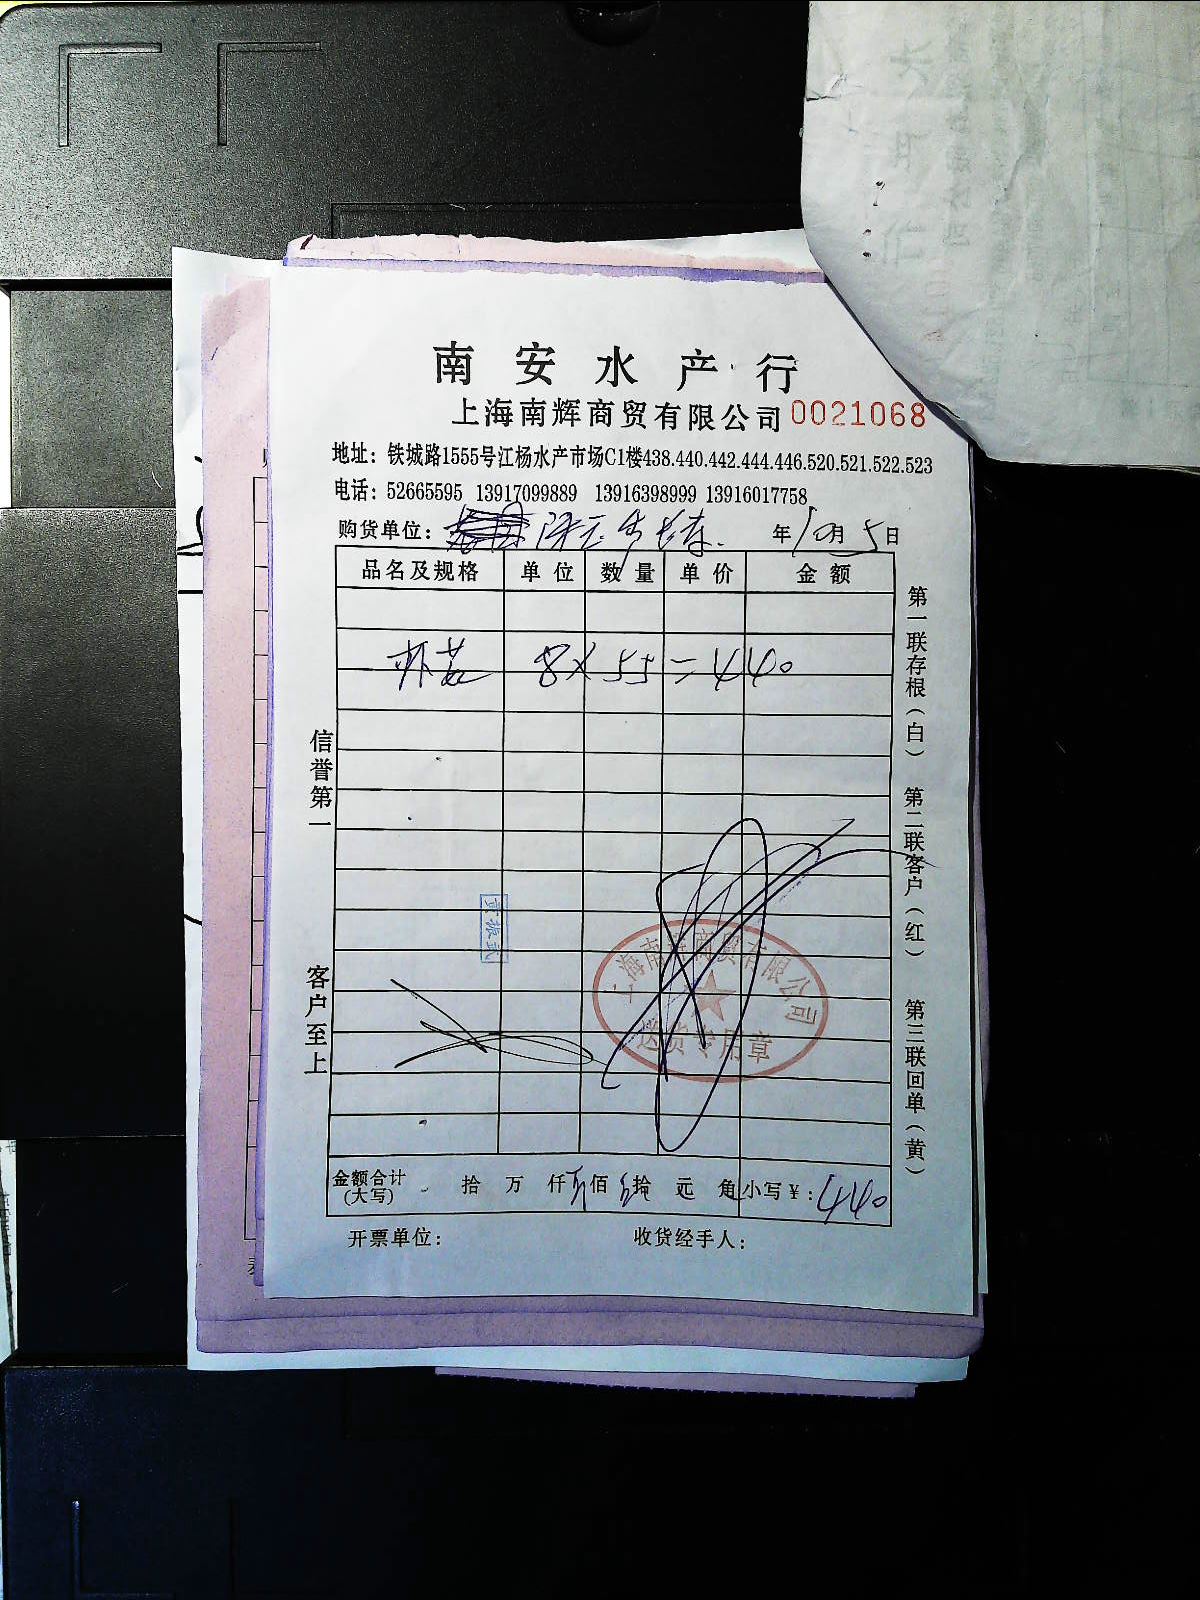 南安水产行
上海南辉商贸有限公司 0021068
地址：铁城路1555号江杨水产市场C1楼438.440.442.444.446.520.521.522.523
电话：52665595 13917099889 13916398999 13916017758
购货单位： 年10月5日
品名及规格 单位 数量 单价 金额
8×55=440
信誉第一
客户至上
第一联存根（白） 第二联客户（红） 第三联回单（黄）
黄振武
上海南辉商贸有限公司
送货专用章
金额合计（大写） 拾 万 仟 佰 拾 元 角 小写￥：440
开票单位： 收货经手人：